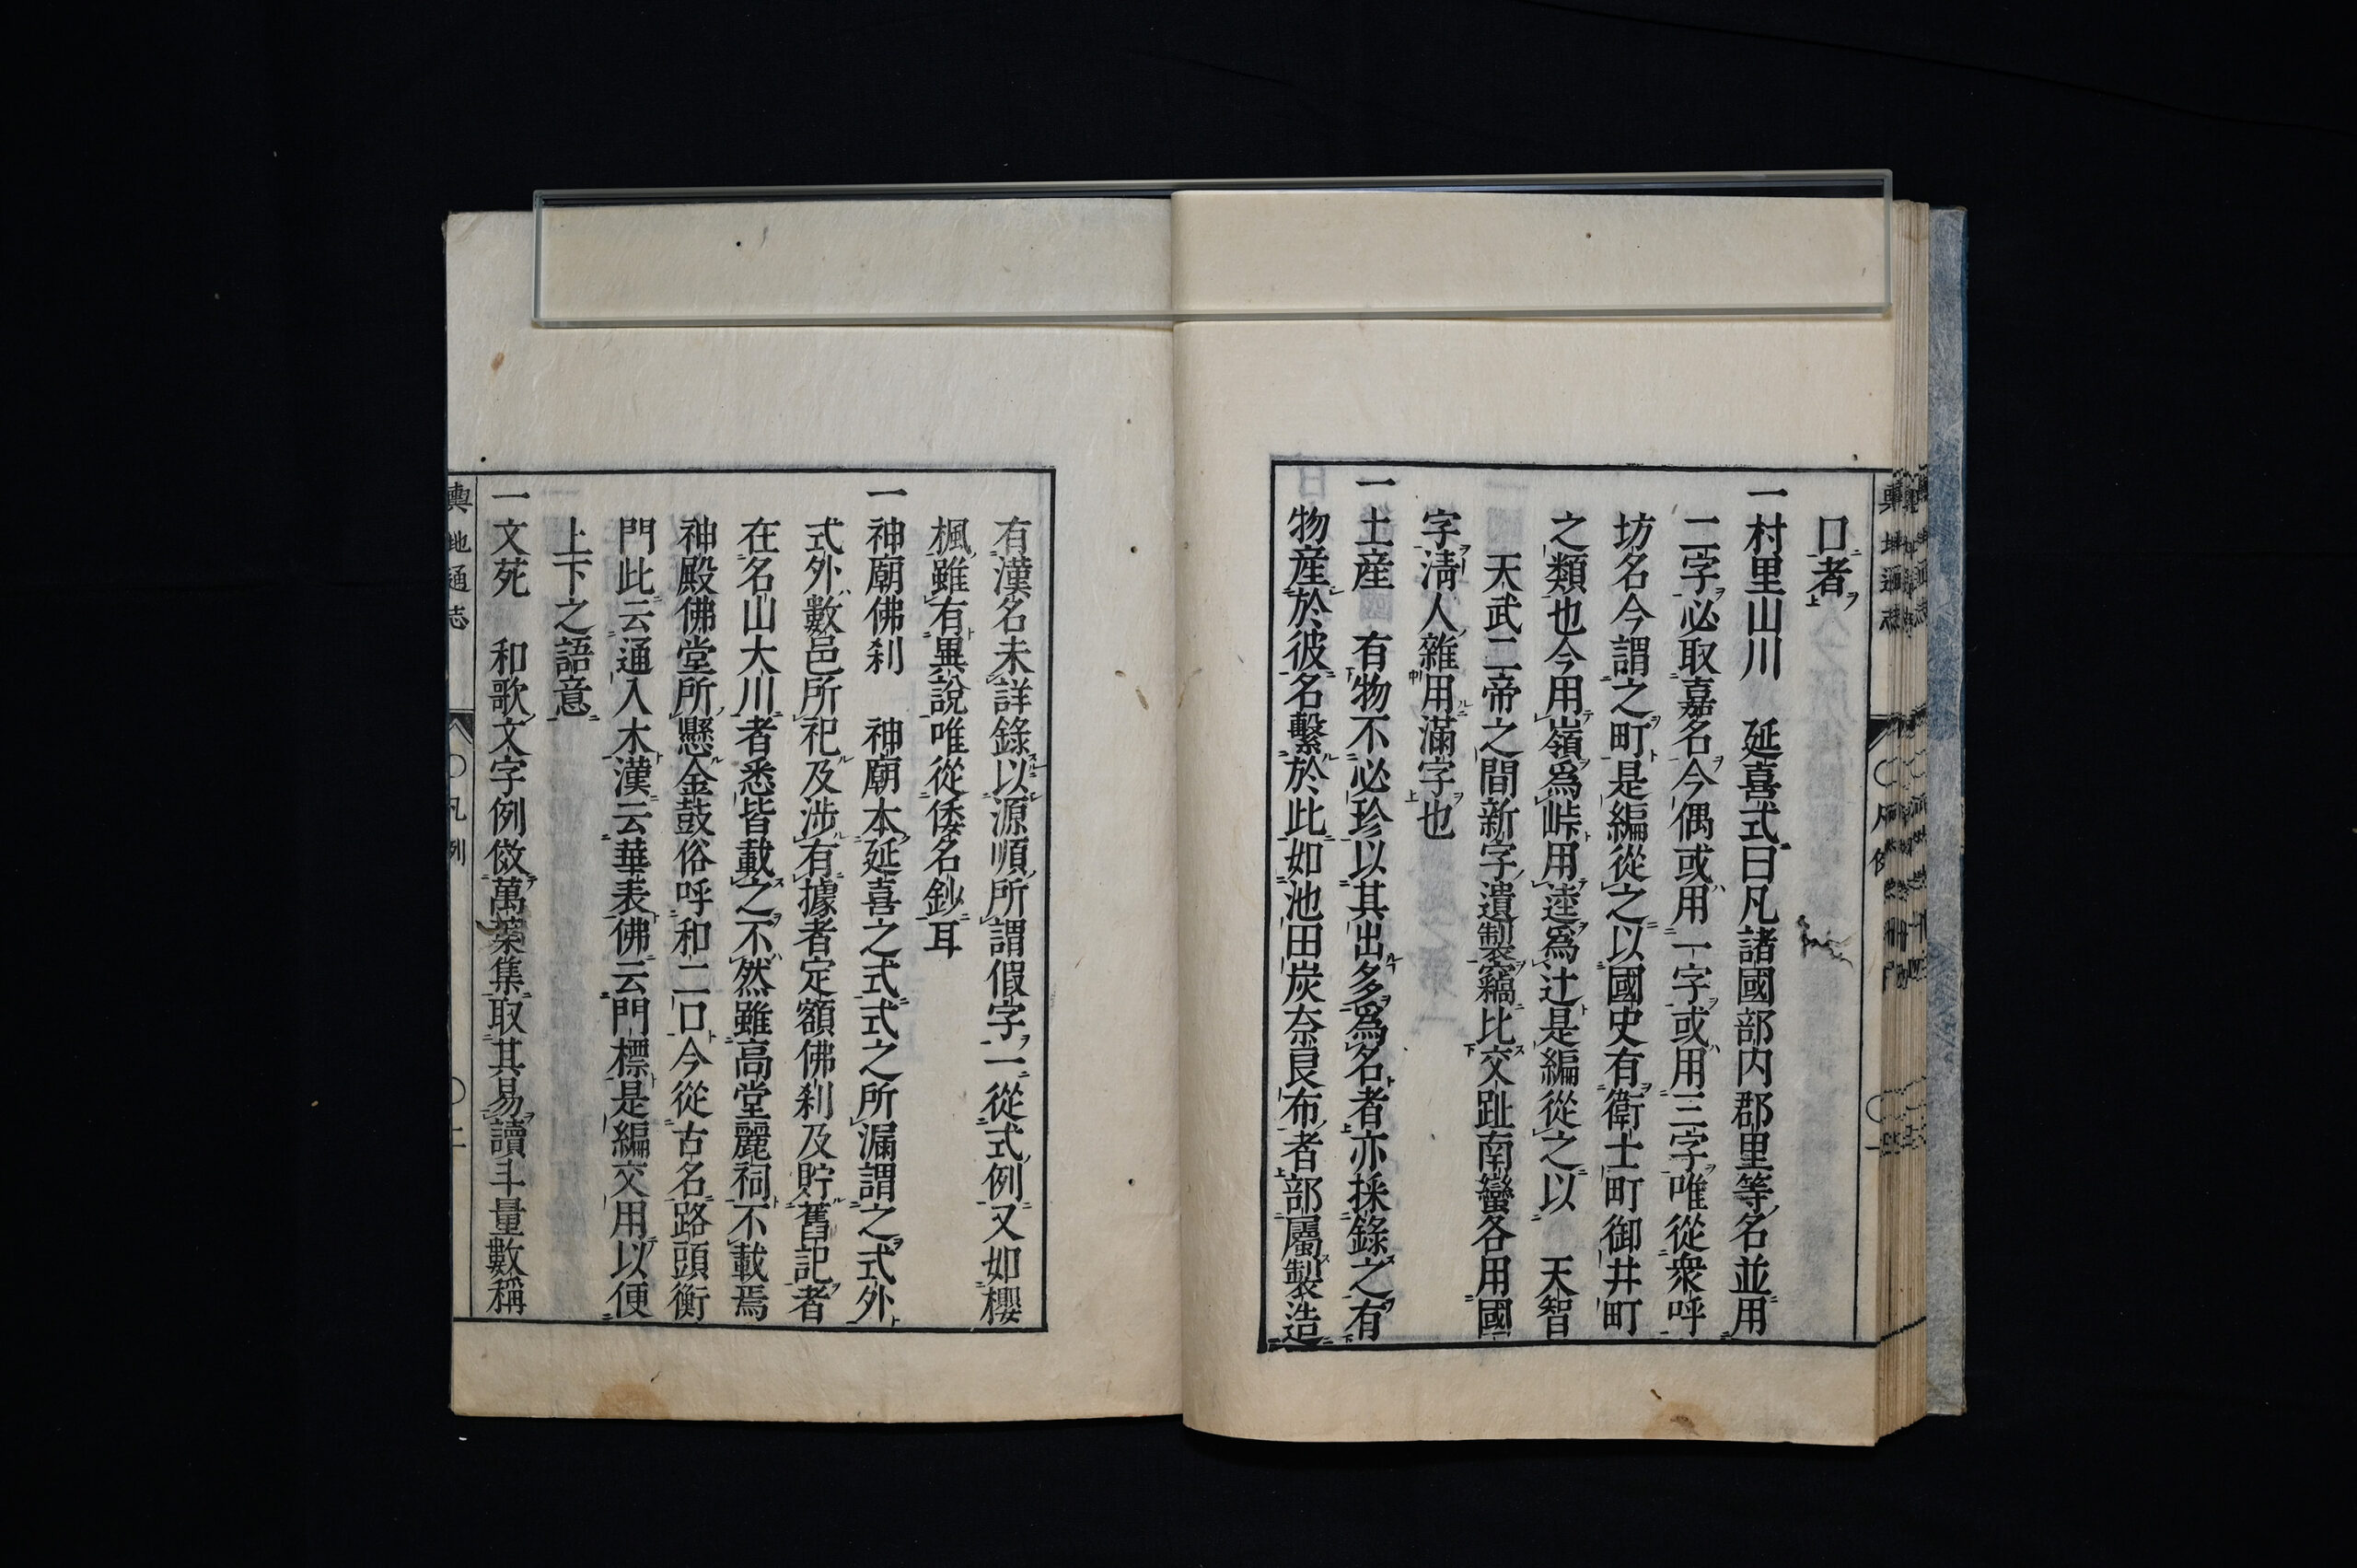 口者
一村里山川 延喜式曰凡諸國部内郡里等名並用
二字必取嘉名今偶或用一字或用三字唯從衆呼
坊名今謂之町是編從之以國史有衛士町御井町
之類也今用嶺爲峠用逵爲辻是編從之以 天智
天武二帝之間新字遺製竊比交趾南蠻各用國
字淸人雜用滿字也
一土産 有物不必珍以其出多爲名者亦採錄之有
物産於彼名繫於此如池田炭奈良布者部屬製造
有漢名未詳錄以源順所謂假字一從式例又如櫻
楓雖有異說唯從倭名鈔耳
一神廟佛刹 神廟本延喜之式式之所漏謂之式外
式外數邑所祀及涉有據者定額佛刹及貯舊記者
在名山大川者悉皆載之不然雖高堂麗祠不載焉
神殿佛堂所懸金鼓俗呼和二口今從古名路頭衡
門此云通入木漢云華表佛云門標是編交用以便
上下之語意
一文苑 和歌文字例倣萬葉集取其易讀斗量數稱
輿地通志 凡例 二